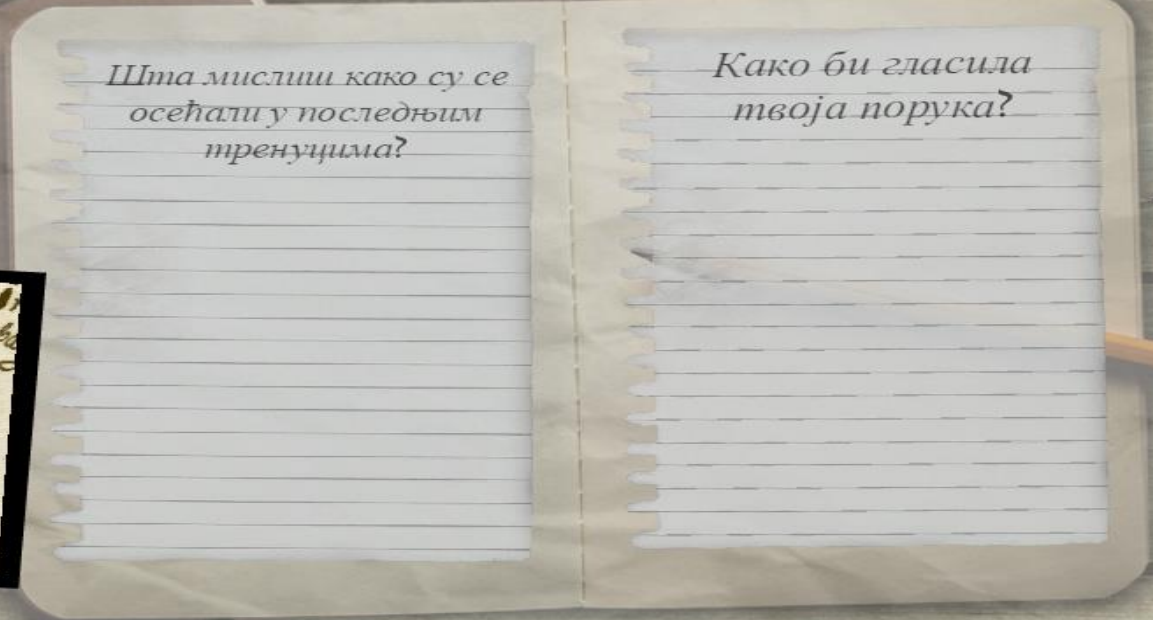 Шта мислиш како су се
осећали у последњим
тренуцима?
Како би гласила
твоја порука?